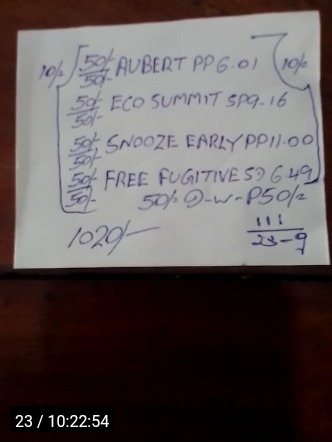 10/2 50/- 50/- AUBERT PP6.01 10/2
50/- 50/- ECO SUMMIT SP9.16
50/- 50/- SNOOZE EARLY PP11.00
50/- 50/- FREE FUGITIVE 6.49
50/2 D-W-P50/2
1020/-
111
23-9
23 / 10:22:54